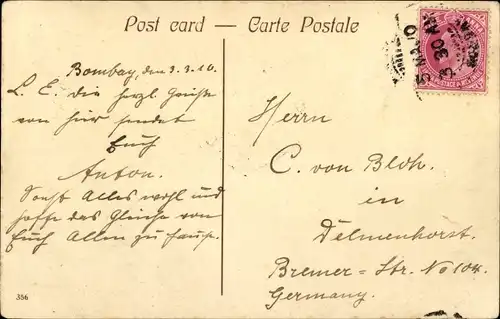 Post card — Carte Postale
Bombay, den 3.3.10.
L. E. die herzl. Grüße
von hier sendet
Euch
Anton.
Sonst Alles wohl und
hoffe das Gleiche von
Euch Allen zu Hause.
Herrn
C. von Bloh.
in
Delmenhorst.
Bremer-Str. No 104.
Germany.
356
3 30 AM